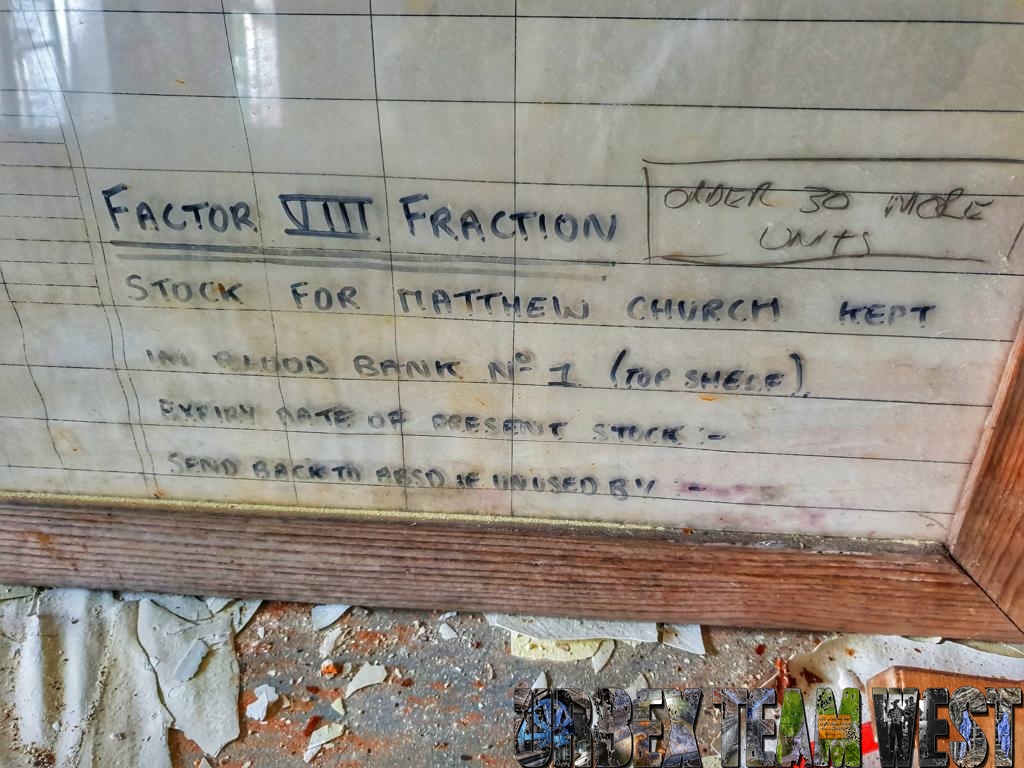 FACTOR VIII FRACTION
ORDER 30 MORE
UNITS
STOCK FOR MATTHEW CHURCH KEPT
IN BLOOD BANK Nº 1 (TOP SHELF).
EXPIRY DATE OF PRESENT STOCK :-
SEND BACK TO ABSD IF UNUSED BY :-
URBEX TEAM WEST